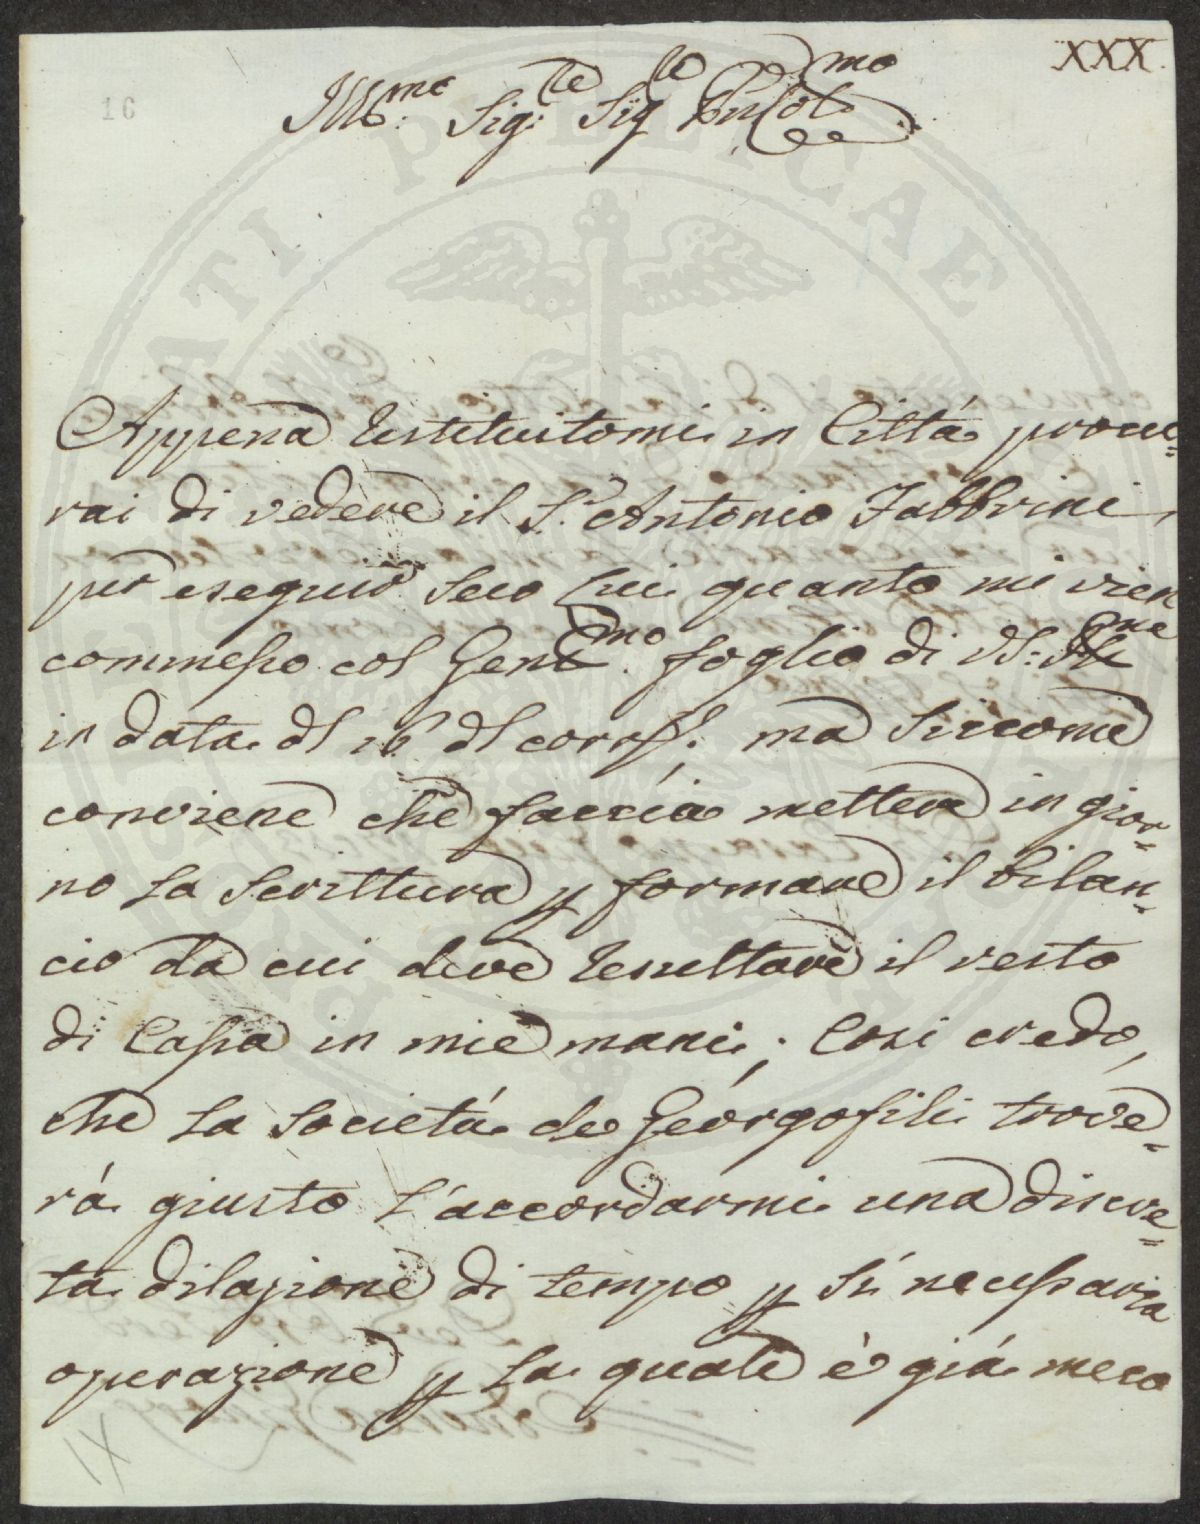 XXX.
16
Ill:mo Sig:re Sig:re Pñe Col:mo
Appena restituitomi in Città procu=
rai di vedere il S.r Antonio Fabbrini,
per eseguir seco lui quanto mi vien
commesso col Gent:mo foglio di VS: Ill:ma
in data dl 16 dl corr.e; ma siccome
conviene che faccia mettere in gior=
no la scrittura p formare il bilan=
cio da cui deve resultare il resto
di Cassa in mie mani; Così credo,
che la Società de Georgofili trove=
rà giusto l'accordarmi una discre=
ta dilazione di tempo p sì necessaria
operazione p la quale è già meco
XI